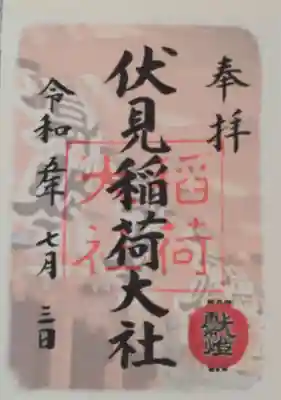 奉拝
伏見稲荷大社
令和五年七月三日
稲荷
大社
献燈